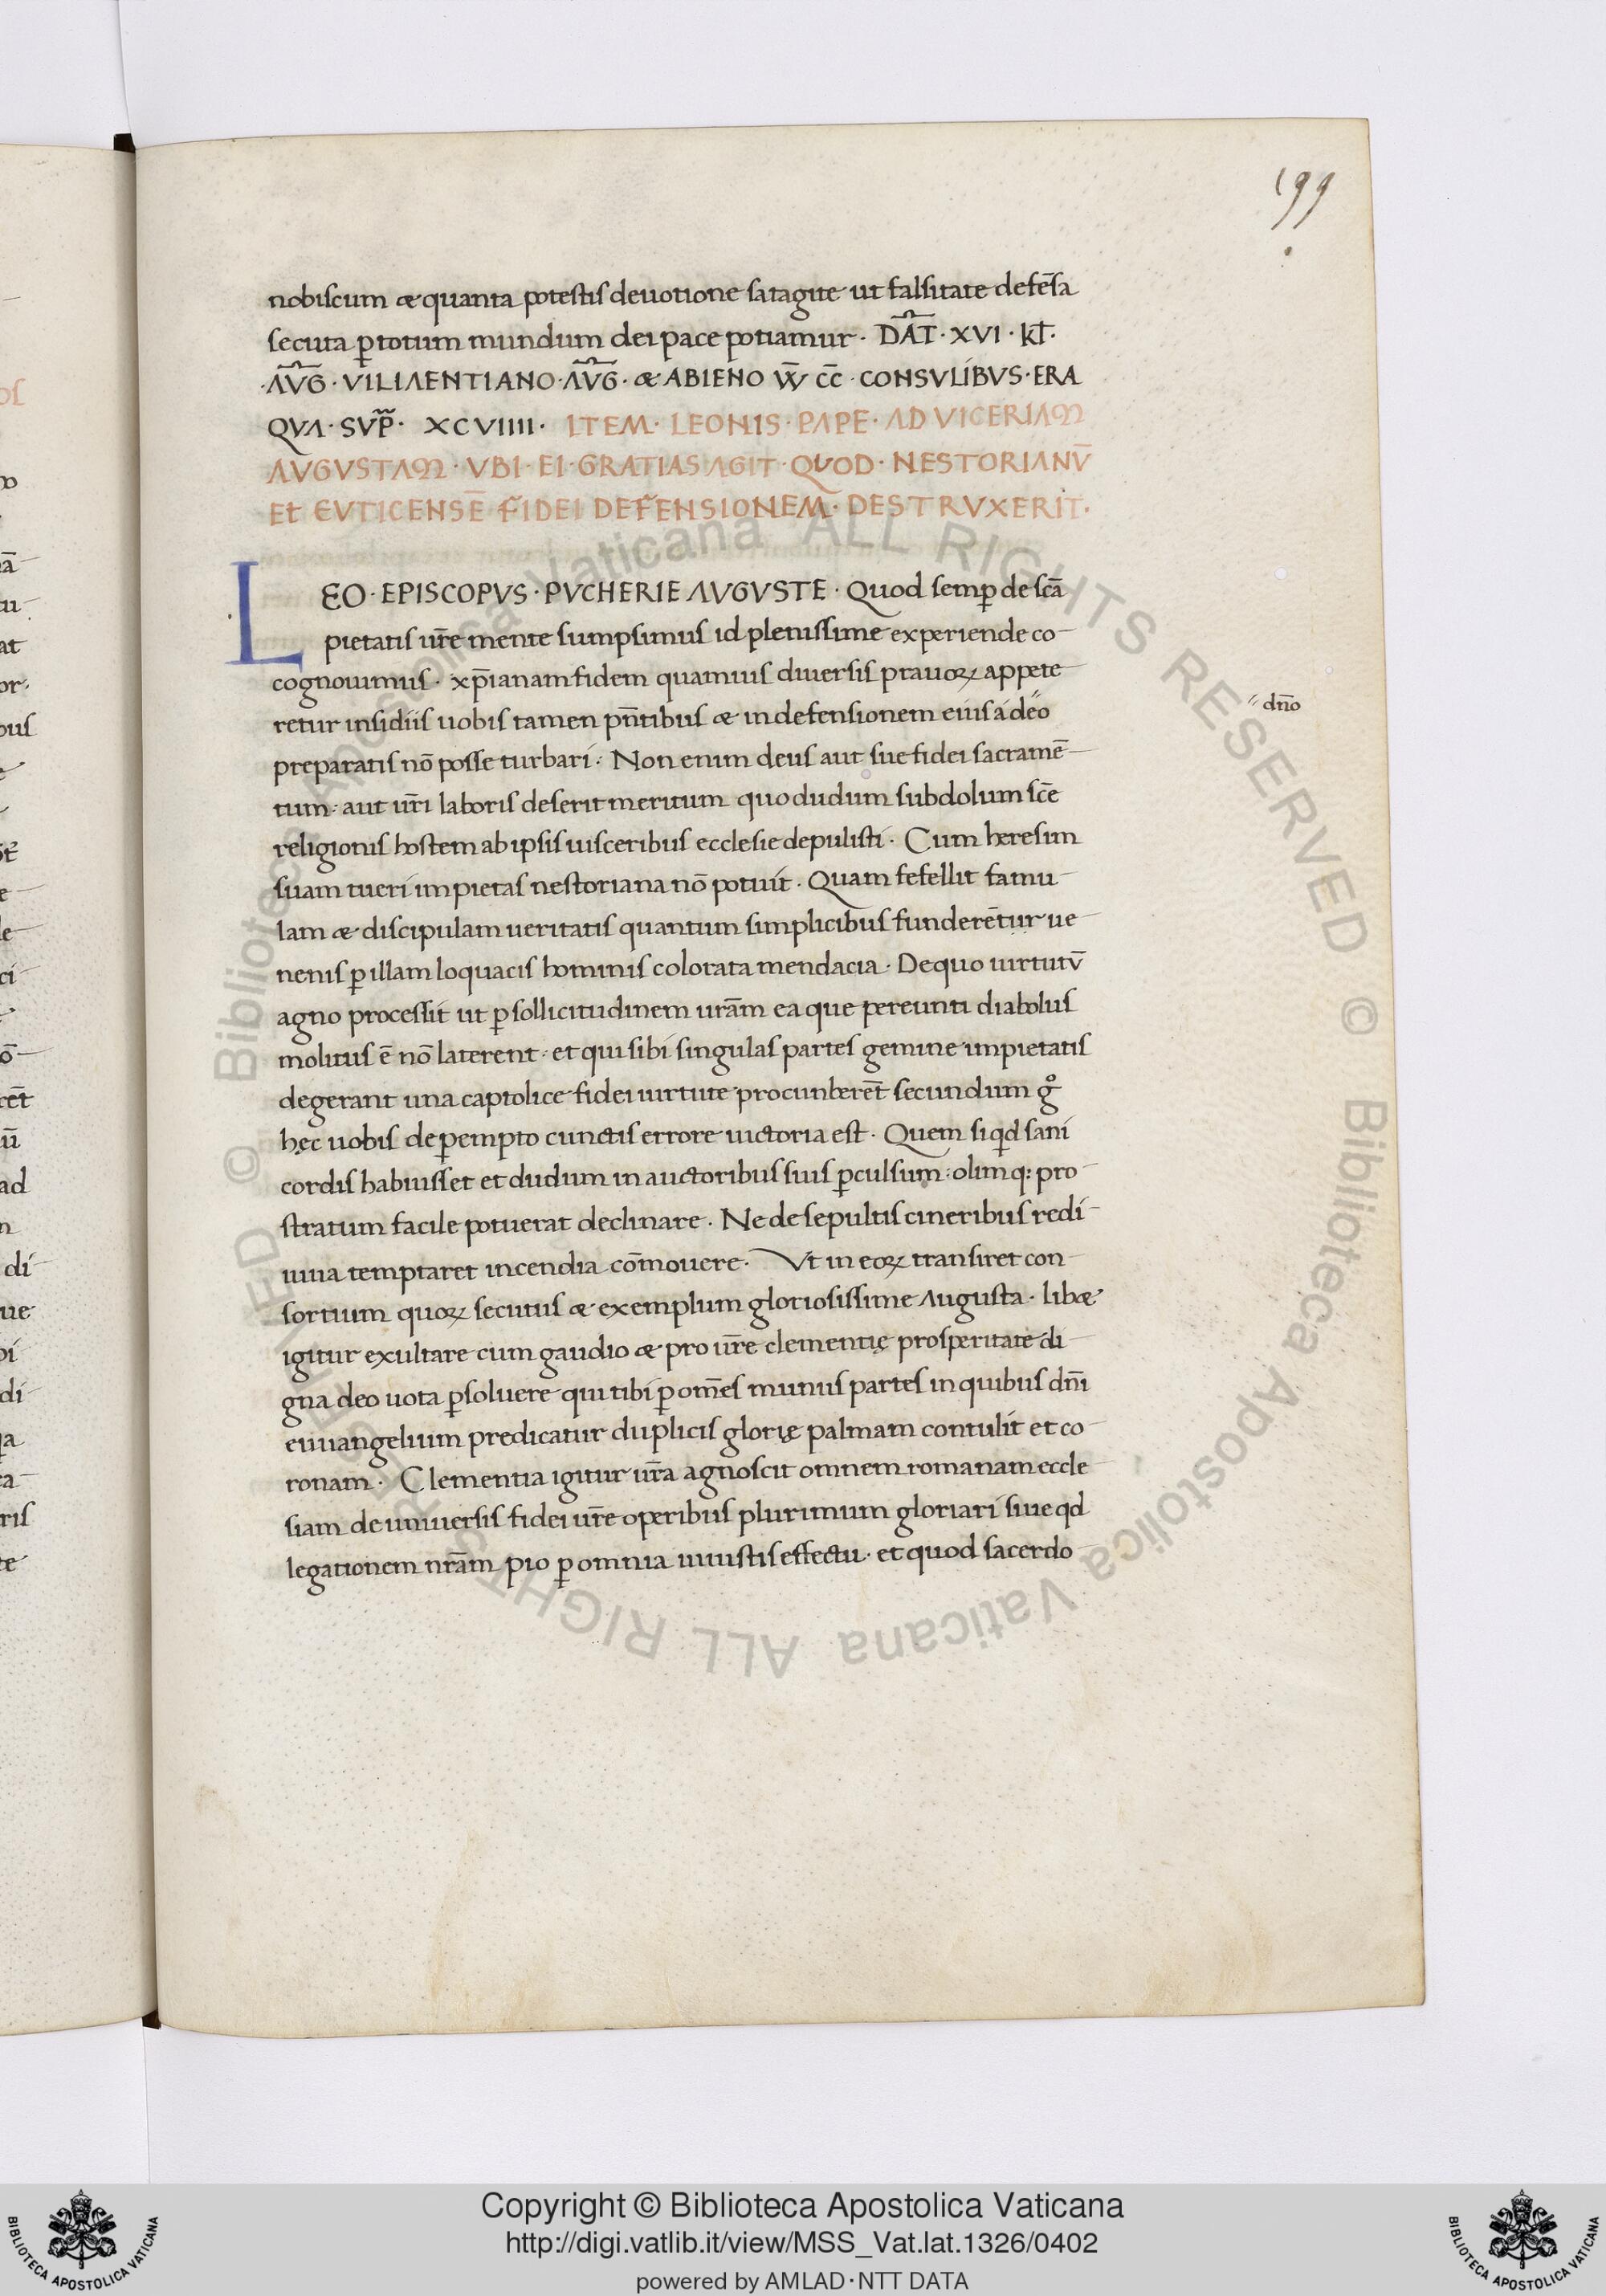 199
nobiscum & quanta potestis deuotione satagite ut falsitate defēsa
secuta ꝑ totum mundum dei pace potiamur · DAT̄ · XVI · kł ·
· AVḠ · VILIAENTIANO · AVḠ · & ABIENO W̄ C̄C̄ · CONSVLIBVS · ERA
QVA · SVP̄ · XCVIIII · ITEM · LEONIS · PAPE · AD VICERIAM
AVGVSTAM · VBI · EI · GRATIAS AGIT · QUOD · NESTORIANV̄
Et EVTICENSĒ FIDEI DEFENSIONEM · DESTRVXERIT ·
LEO · EPISCOPVS · PVCHERIE AVGVSTE · Quod semꝑ de scā
pietatis ur̄e mente sumpsimus id plenissime experiende co
cognouimus · xp̄ianam fidem quamuis diuersis prauoꝝ appete
retur insidiis uobis tamen pn̄tibus & in defensionem eius a deo
" dn̄o
preparatis nō posse turbari : Non enim deus aut sue fidei sacramē
tum : aut ur̄i laboris deserit meritum quo dudum subdolum sc̄e
religionis hostem ab ipsis uisceribus ecclesie depulisti · Cum heresim
suam tueri impietas nestoriana nō potuit · Quam fefellit famu
lam & discipulam ueritatis quantum simplicibus funderētur ue
nenis ꝑ illam loquacis hominis colorata mendacia · De quo uirtutū
agno processit ut ꝑ sollicitudinem urām ea que pereunti diabolus
molitus ē nō laterent · et qui sibi singulas partes gemine impietatis
degerant una captolice fidei uirtute procunberēt secundum gͦ
hęc uobis de ꝑempto cunctis errore uictoria est · Quem si qd sani
cordis habuisset et dudum in auctoribus suis ꝑculsum : olim q: pro
stratum facile potuerat declinare · Ne de sepultis cineribus redi
uiua temptaret incendia cōmouere · Vt in eoꝝ transiret con
sortium quoꝝ secutus & exemplum gloriosissime Augusta · lib&
igitur exultare cum gaudio & pro ur̄e clementię prosperitate di
gna deo uota ꝑsoluere qui tibi ꝑ om̄es munus partes in quibus dn̄i
euuangelium predicatur duplicis glorię palmam contulit et co
ronam · Clementia igitur ur̄a agnoscit omnem romanam eccle
siam de uniuersis fidei ur̄e operibus plurimum gloriari siue qd
legationem nrām pio ꝑ omnia iuuistis effectu · et quod sacerdo
© Biblioteca Apostolica Vaticana ALL RIGHTS RESERVED © Biblioteca Apostolica Vaticana ALL RIGHTS RESERVED
Copyright © Biblioteca Apostolica Vaticana
http://digi.vatlib.it/view/MSS_Vat.lat.1326/0402
powered by AMLAD·NTT DATA
BIBLIOTECA APOSTOLICA VATICANA
BIBLIOTECA APOSTOLICA VATICANA